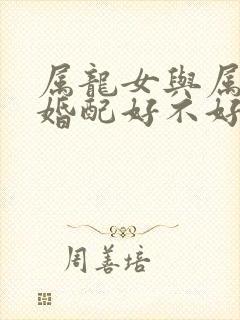 属龍女與属
婚配好不好
周善培